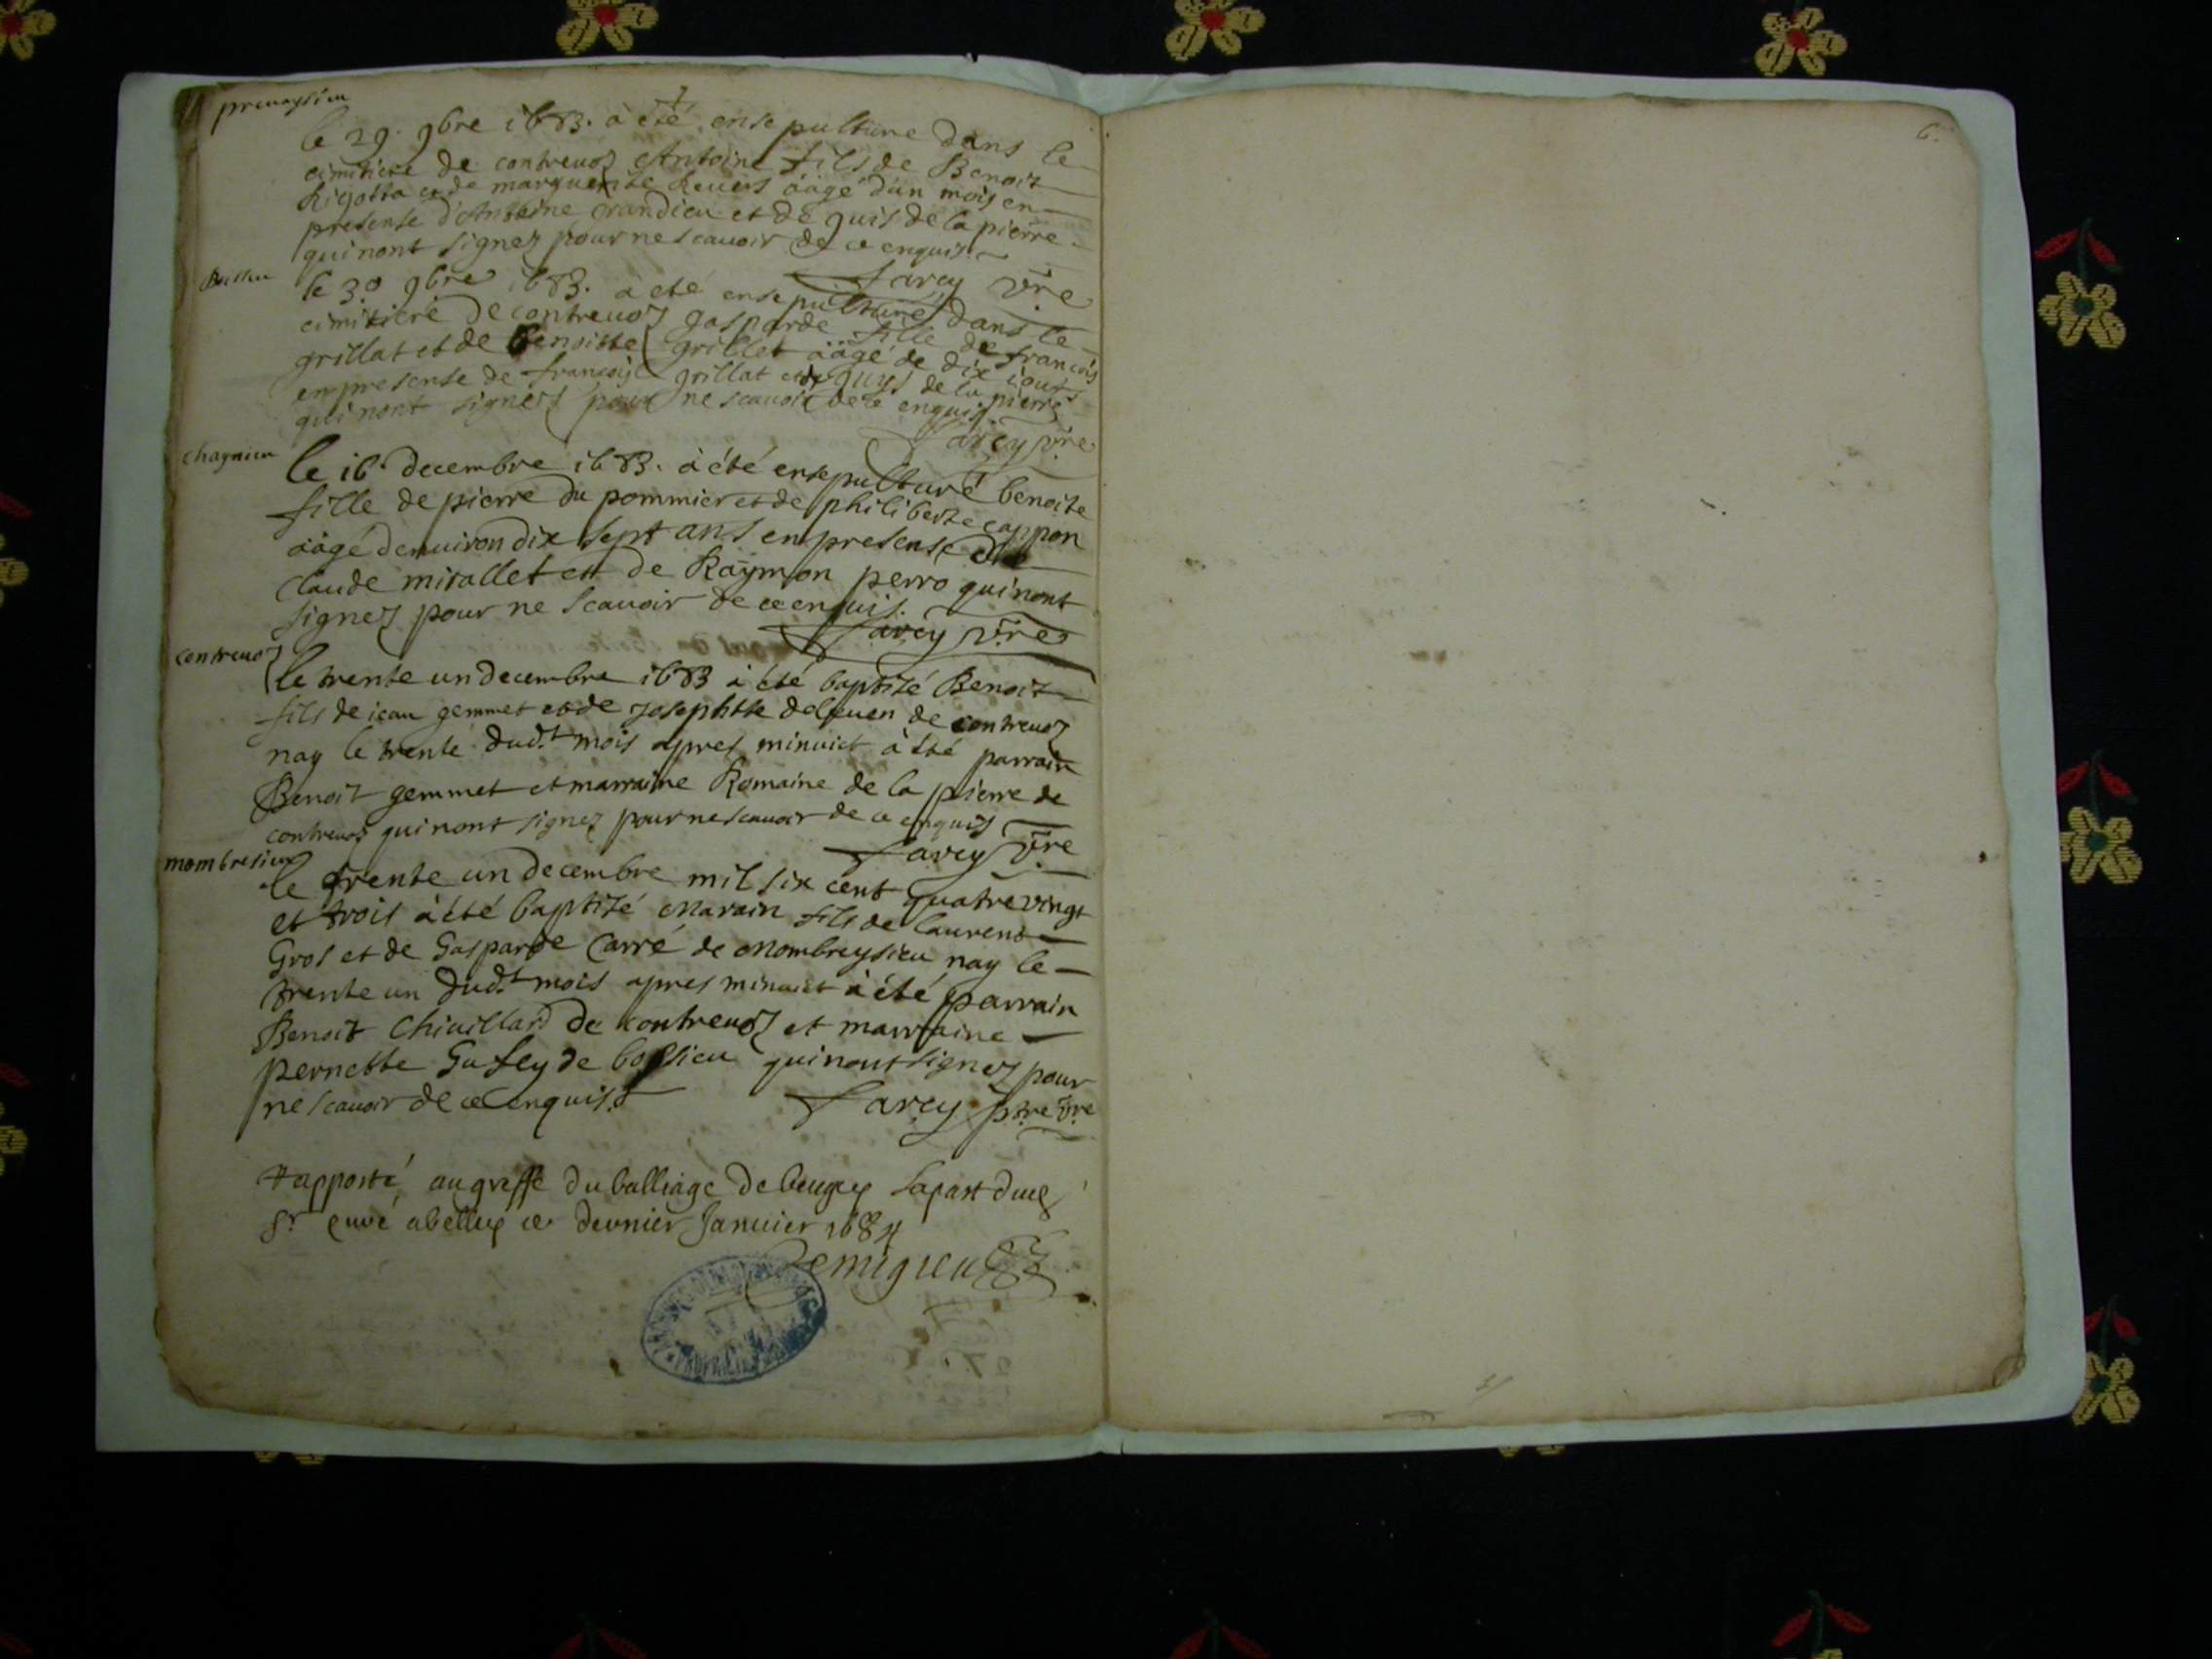 premeysieu
le 29. 9bre 1683. à été ensepulturé dans le
cimitiere de contrevoz Antoine fils de Benoit
Rigotta et de marguerite Revers aâgé d'un mois en
presense d'Antoine Grandieu et de guis de la pierre
qui nont signez pour ne scauoir de ce enquis
Farcy vre
le 30 9bre 1683. a eté ensepulturé dans le
cimitiere de contreuoz gasparde fille de francois
grillat et de Benoitte grillet aâgé de dix iours
en presense de francois grillat et de guis de la pierre
qui nont signez pour ne scauoir de ce enquis
Farcy vre
chagnieu
le 16 decembre 1683. à été ensepulturé benoite
fille de pierre du pommier et de philiberte cappon
aâgé denuiron dix sept ans en presense de
Claude mirallet et de Raymon perro qui nont
signez pour ne scauoir de ce enquis.
Farcy vre
contreuoz
le trente un decembre 1683 à été baptizé Benoit
fils de iean gemmet et de Josephtte de contreuoz
nay le trente dud.t mois apres minuict à été parrain
Benoit gemmet et marraine Romaine de la pierre de
contreuoz qui nont signez pour ne scauoir de ce enquis
Farcy vre
mombresieux
le trente un decembre mil six cent quatre vingt
et trois à été baptizé Marain fils de laurent
Gros et de Gasparde Carré de Mombreysieu nay le
trente un dud.t mois apres minuict à été parrain
Benoit Chiuillard de contreuoz et marraine
pernette Gusey de bossieu qui nont signez pour
ne scauoir de ce enquis
Farcy ptre vre
Rapporté au greffe du balliage de beugey par
Sr curé a belley ce dernier Januier 1684
Demigieu
6.